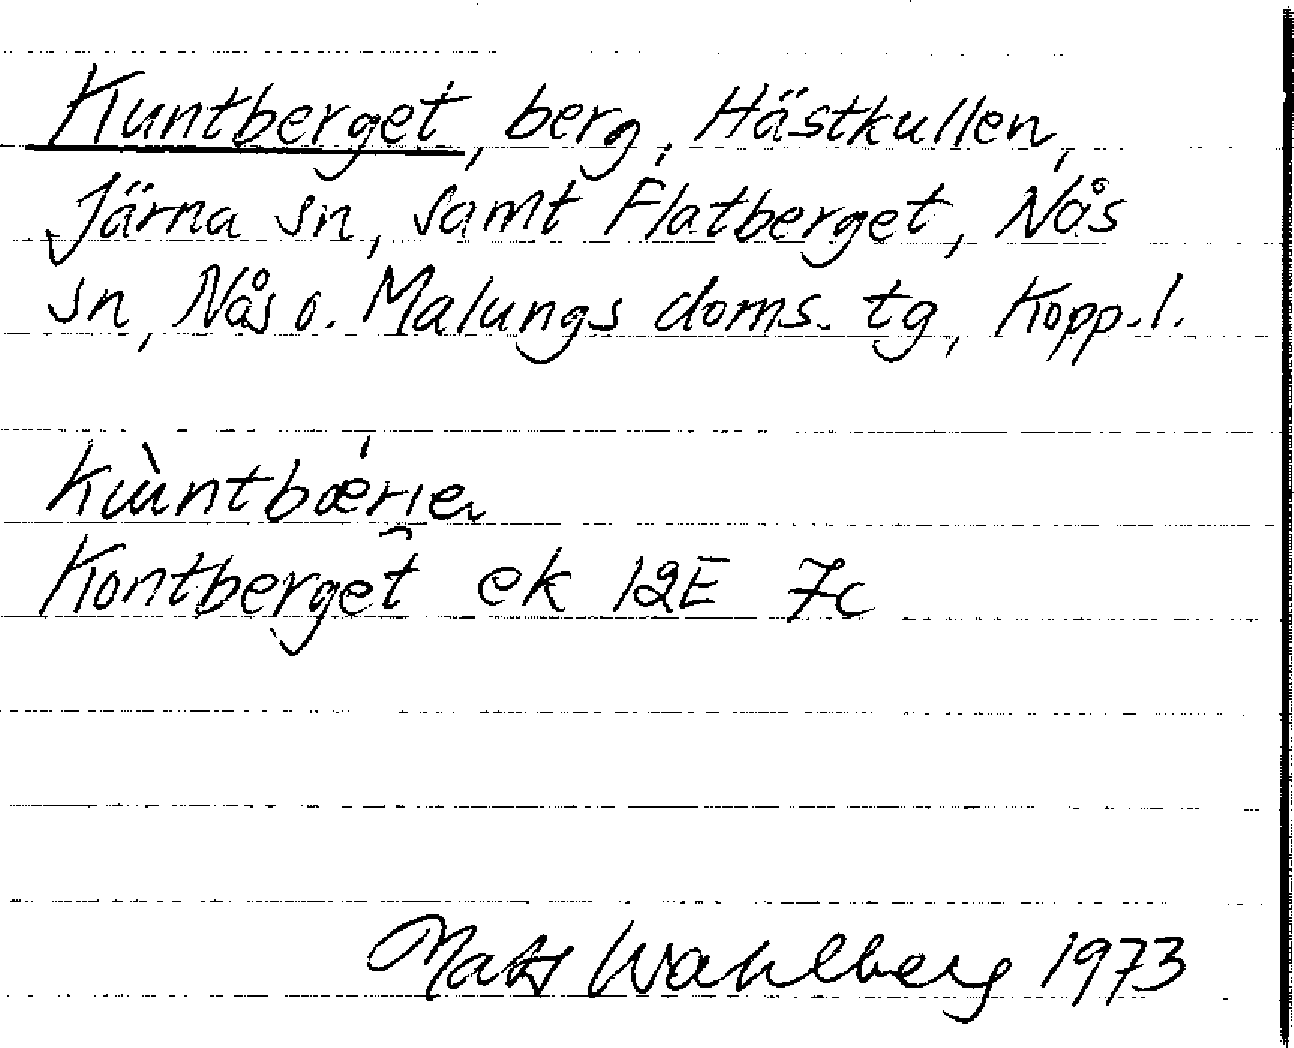 Kuntberget, berg, Hästkullen,
Järna sn, samt Flatberget, Nås
sn, Nås o. Malungs doms. tg, Kopp. l.
Kontberget ek 12E 7c
Mats Wahlberg 1973